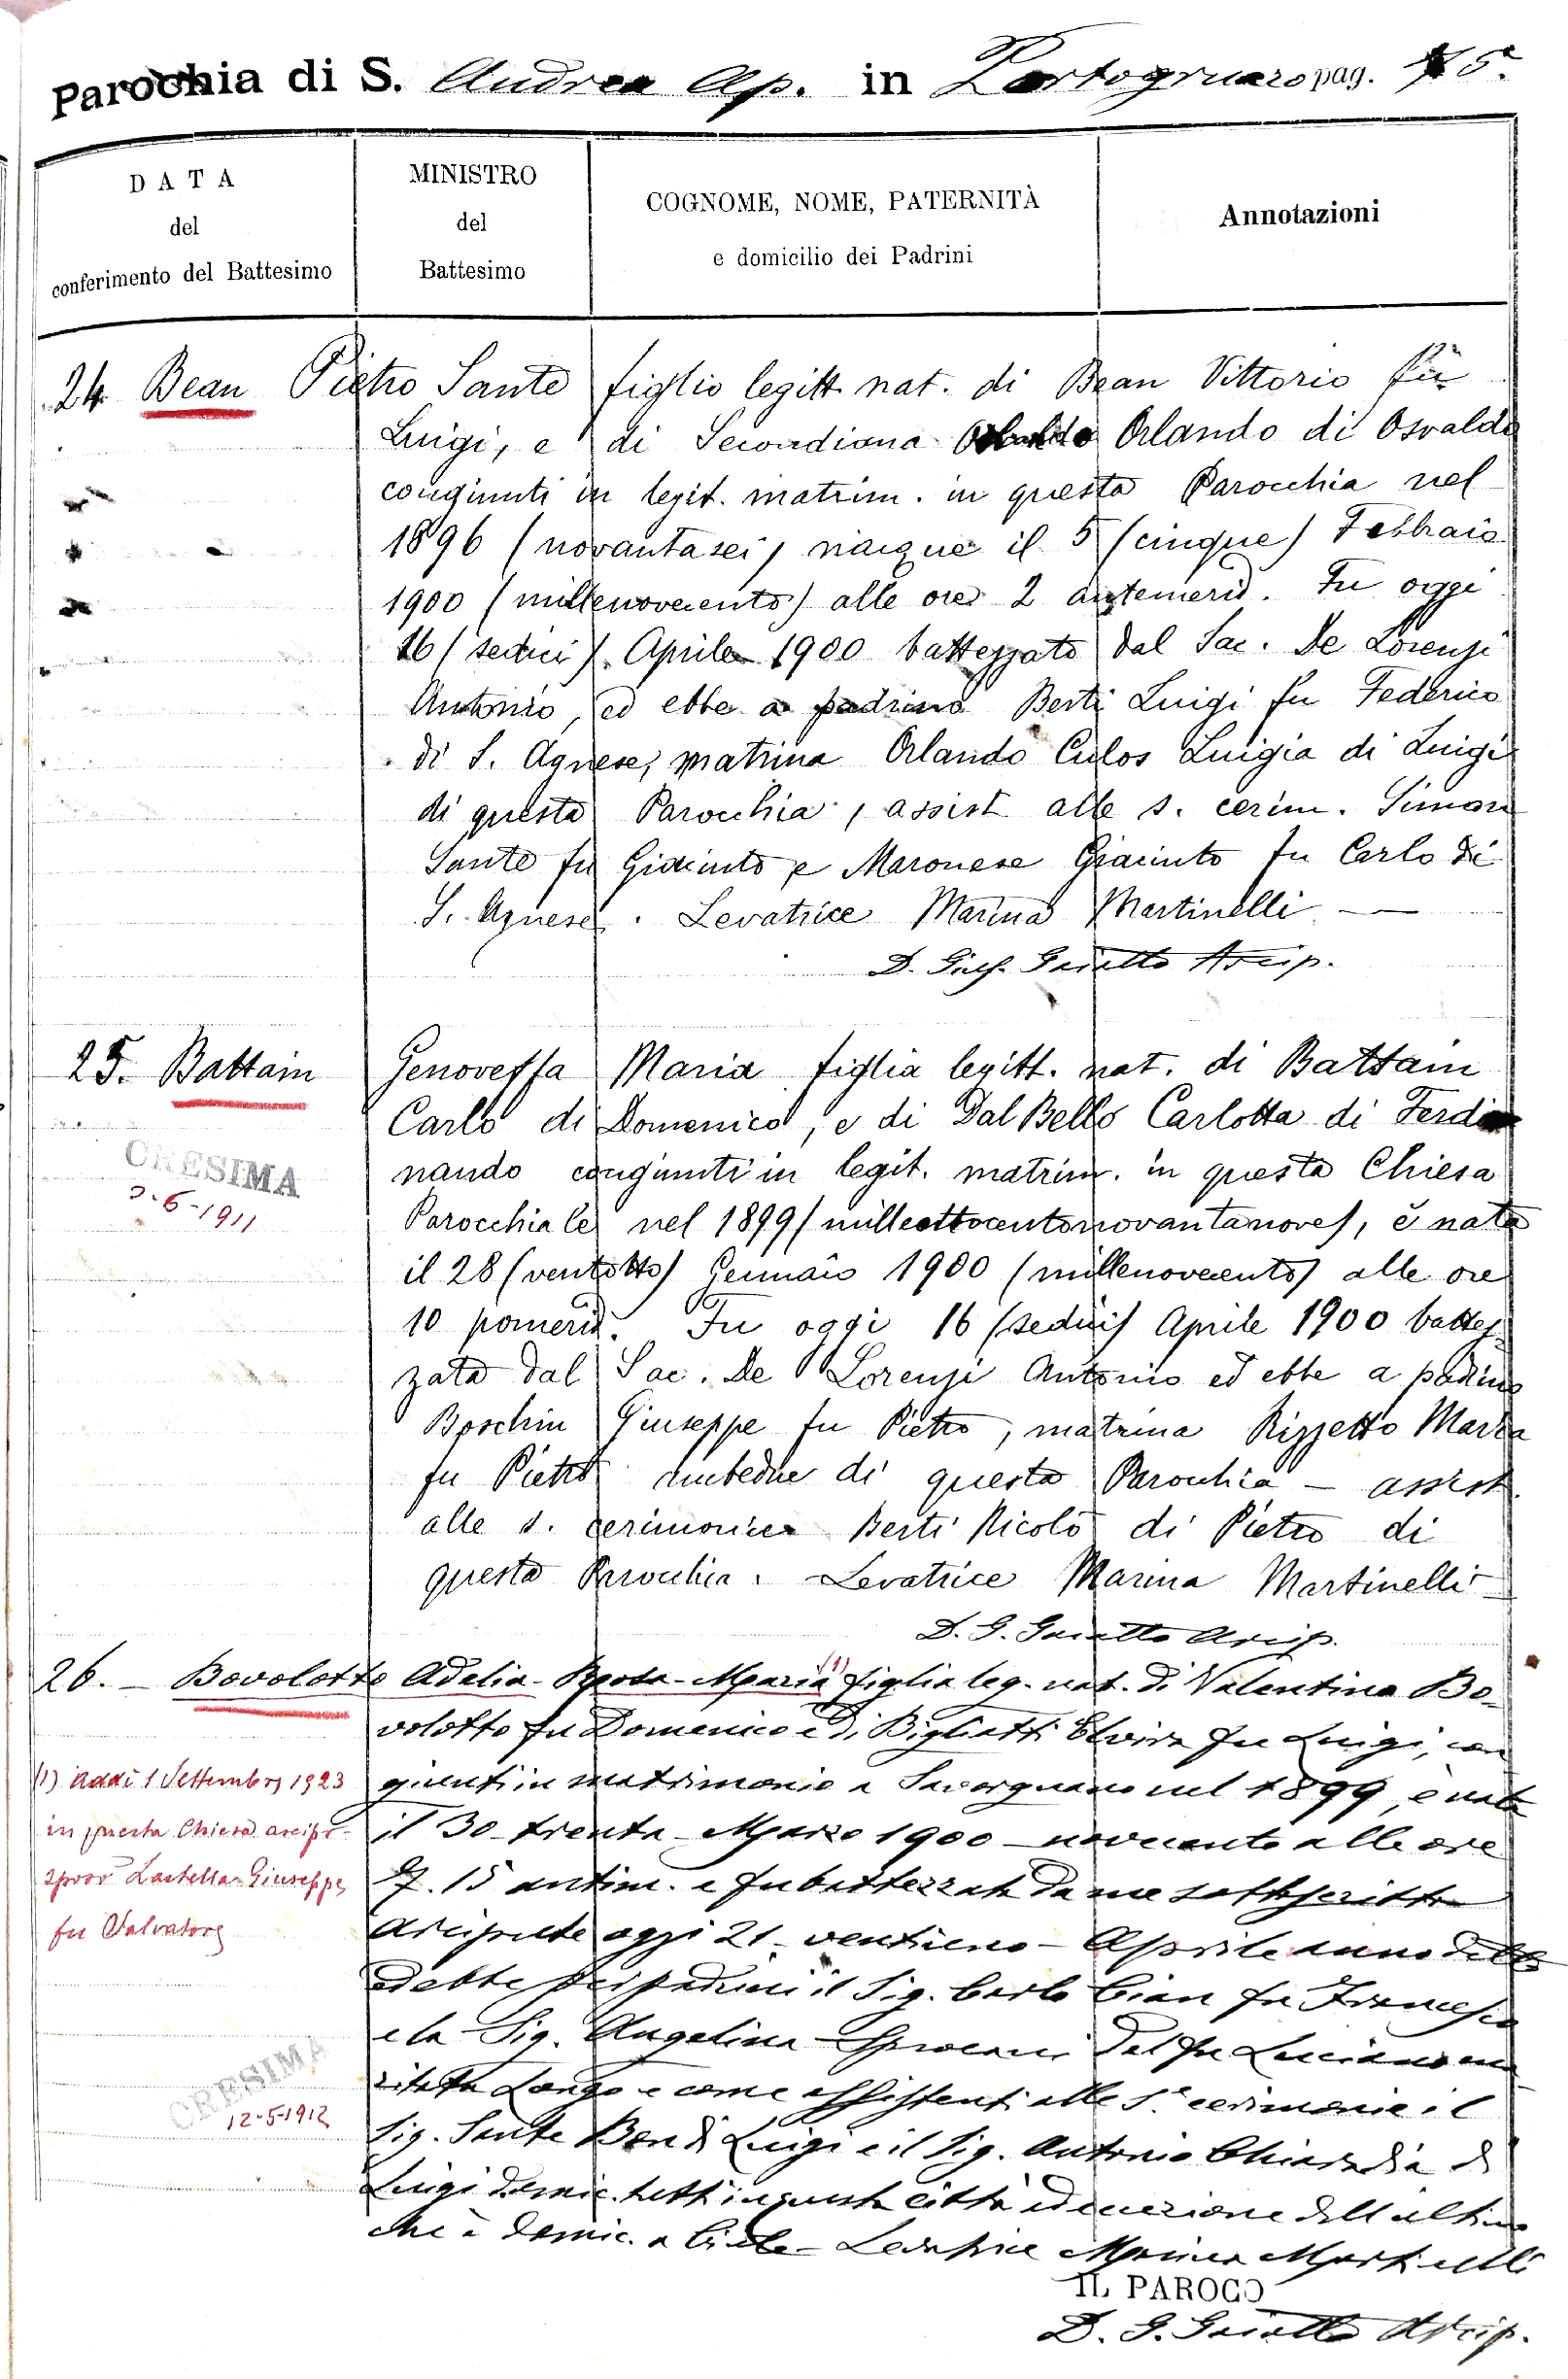 Parochia di S. Andrea Ap. in Portogruaro pag. 5.
DATA
del
conferimento del Battesimo
MINISTRO
del
Battesimo
COGNOME, NOME, PATERNITÀ
e domicilio dei Padrini
Annotazioni
24 Bean Pietro Sante figlio legitt. nat. di Bean Vittorio fu
Luigi, e di Secondiana Orlando di Osvaldo
congiunti in legit. matrim. in questa Parocchia nel
1896 (novantasei) nacque il 5 (cinque) Febbraio
1900 (millenovecento) alle ore 2 antemerid. Fu oggi
16 (sedici) Aprile 1900 battezzato dal Sac. De Lorenzi
Antonio, ed ebbe a padrino Berti Luigi fu Federico
di S. Agnese, matrina Orlando Culos Luigia di Luigi
di questa Parocchia, assist. alle s. cerim. Simon
Sante fu Giacinto e Maronese Giacinto fu Carlo di
S. Agnese. Levatrice Marina Martinelli —
D. Gius. Gaiatto Arcip.
25. Battain Genoveffa Maria figlia legitt. nat. di Battain
Carlo di Domenico, e di Dal Bello Carlotta di Ferdi
nando congiunti in legit. matrim. in questa Chiesa
Parocchiale nel 1899 (milleottocentonovantanove), è nata
il 28 (ventotto) Gennaio 1900 (millenovecento) alle ore
10 pomerid. Fu oggi 16 (sedici) Aprile 1900 battez-
zata dal Sac. De Lorenzi Antonio ed ebbe a padrino
Boschin Giuseppe fu Pietro, matrina Rizzetto Maria
fu Pietro ambedue di questa Parochia – assist.
alle s. cerimonie Berti Nicolò di Pietro di
questa Parocchia. Levatrice Marina Martinelli –
D. G. Gaiatto Arcip.
CRESIMA
2-6-1911
26. – Bovolotto Adelia-Rosa-Maria (1) figlia leg. nat. di Valentino Bo-
volotto fu Domenico e di Bigliatti Elvira fu Luigi, con
giunti in matrimonio a Savorgnano nel 1899, è nata
il 30 trenta Marzo 1900 – novecento alle ore
7.15 antim. e fu battezzata da me sottoscritto
Arciprete oggi 21 ventiuno – Aprile anno detto
ed ebbe per padrini il Sig. Carlo Cian fu Francesco
e la Sig. Angelina del fu Luciano ma
ritata Longo e come assistenti alle S.e cerimonie il
Sig. Sante Bon di Luigi e il Sig. Antonio Chiaradia di
Luigi domic. tutti in questa città ad eccezione dell'ultimo
che è domic. a – Levatrice Marina Martinelli
IL PAROCO
D. G. Gaiatto Arcip.
(1) addì 1 Settembre 1923
in questa Chiesa arcipr.
sposò Lastella Giuseppe
fu Salvatore
CRESIMA
12-5-1912